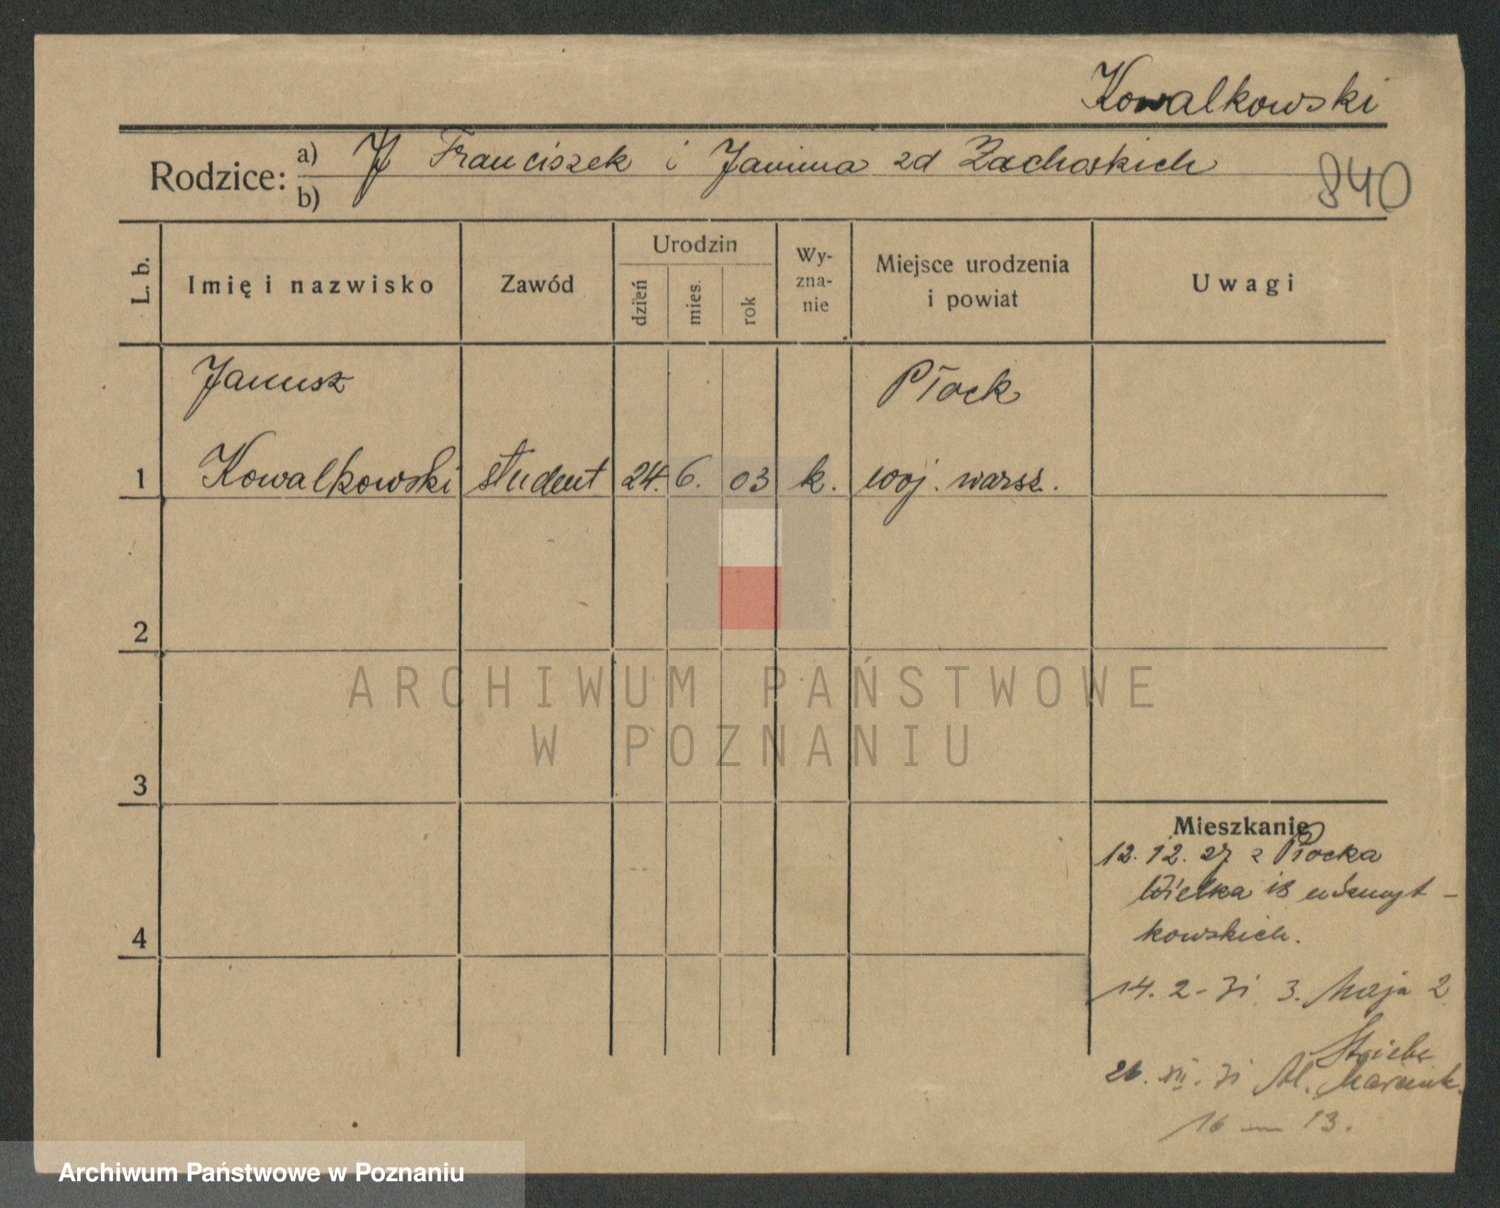 Kowalkowski
Rodzice: a) Franciszek i Janina zd Zachorskich
b)
840
L. b.
Imię i nazwisko
Zawód
Urodzin
dzień
mies.
rok
Wy-
zna-
nie
Miejsce urodzenia
i powiat
Uwagi
Janusz
Płock
1 Kowalkowski student 24. 6. 03 k. woj. warsz.
2
ARCHIWUM PAŃSTWOWE
W POZNANIU
3
Mieszkanie
12. 12. 27 z Płocka
Wielka 18
kowskich.
4
14. 2 - 31 3. Maja 2
XII. 31 Al. Marcink.
16 — 13.
Archiwum Państwowe w Poznaniu